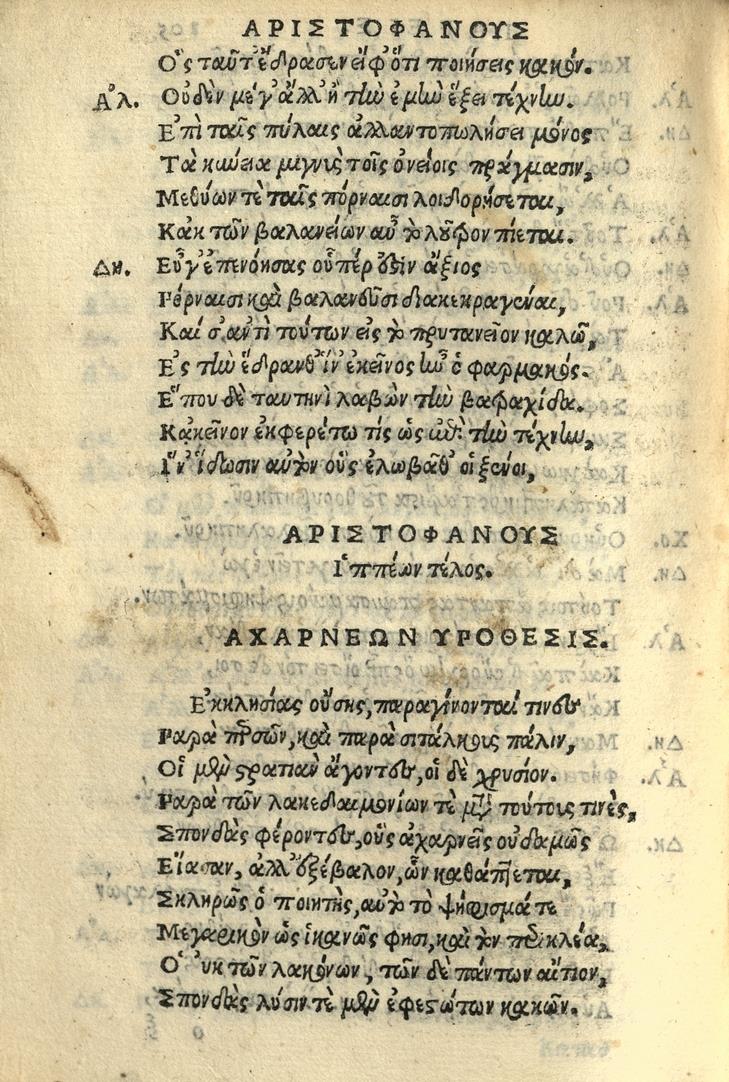 ΑΡΙΣΤΟΦΑΝΟΥΣ
Ὃς ταῦτ' ἔδρασεν εἴφ' ὅτι ποιήσεις κακόν.
Ἀλ. Οὐδὲν μέγ' ἀλλ' ἢ τὴν ἐμὴν ἕξει τέχνην.
Ἐπὶ ταῖς πύλαις ἀλλαντοπωλήσει μόνος
Τὰ κύνεια μιγνὺς τοῖς ὀνείοις πράγμασιν,
Μεθύων τὲ ταῖς πόρναισι λοιδορήσεται,
Κἀκ τῶν βαλανείων αὖ τὸ λοῦτρον πίεται.
Δη. Εὖ γ' ἐπενόησας οὗπέρ ἐστιν ἄξιος
Πόρναισι καὶ βαλανεῦσι διακεκραγέναι,
Καί σ' ἀντὶ τούτων εἰς τὸ πρυτανεῖον καλῶ,
Ἐς τὴν ἕδραν θ' ἵν' ἐκεῖνος ἦν ὁ φαρμακός.
Ἕπου δὲ ταυτηνὶ λαβὼν τὴν βατραχίδα.
Κἀκεῖνον ἐκφερέτω τίς ὡς ἐπὶ τὴν τέχνην,
Ἵν' ἴδωσιν αὐτὸν οὓς ἐλωβᾶθ' οἱ ξένοι,
ΑΡΙΣΤΟΦΑΝΟΥΣ
Ἱππέων τέλος.
ΑΧΑΡΝΕΩΝ ΥΠΟΘΕΣΙΣ.
Ἐκκλησίας οὔσης, παραγίνονταί τινες
Παρὰ περσῶν, καὶ παρὰ σιτάλκους πάλιν,
Οἱ μὲν στρατιὰν ἄγοντες, οἱ δὲ χρυσίον.
Παρὰ τῶν λακεδαιμονίων τὲ μετὰ τούτους τινὲς,
Σπονδὰς φέροντες, οὓς ἀχαρνεῖς οὐδαμῶς
Εἴασαν, ἀλλ' ἐξέβαλον, ὧν καθάπτεται,
Σκληρῶς ὁ ποιητής, αὐτὸ τὸ ψήφισμά τε
Μεγαρικὸν ὡς ἱκανῶς φησι, καὶ τὸν περικλέα,
Οὐκ τῶν λακώνων, τῶν δὲ πάντων αἴτιον,
Σπονδὰς λύσιν τὲ μὲν ἐφεστώτων κακῶν.